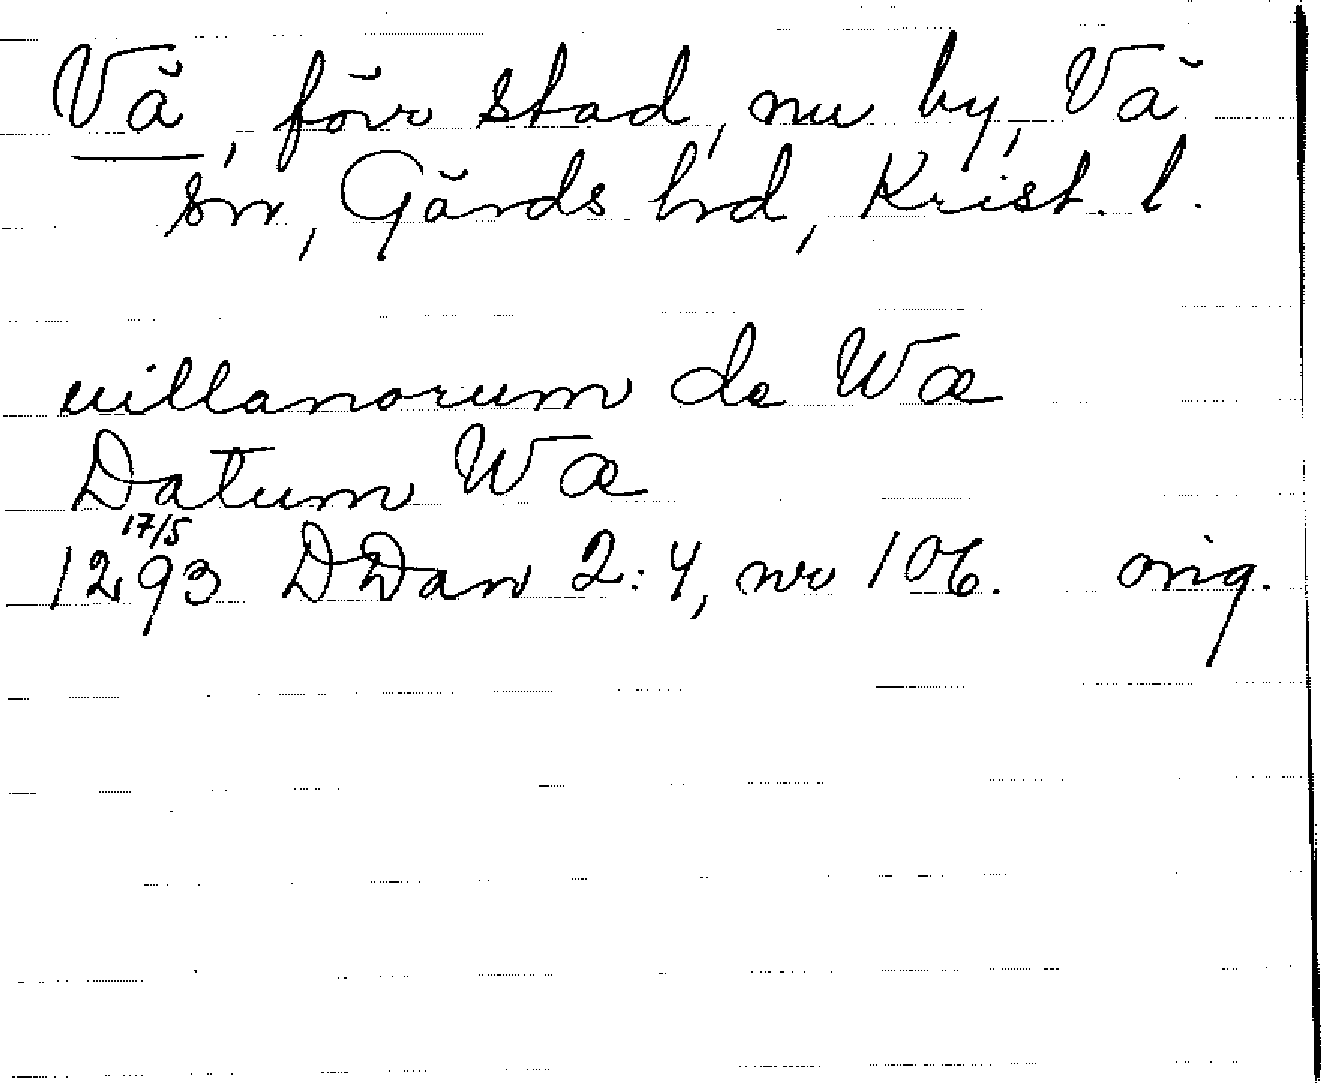 Vä, förr stad, nu by, Vä
sn, Gärds hd, Krist. l.
uillanorum de Wæ
Datum Wæ
17/5
1293 DDan 2:4, nr 106. orig.